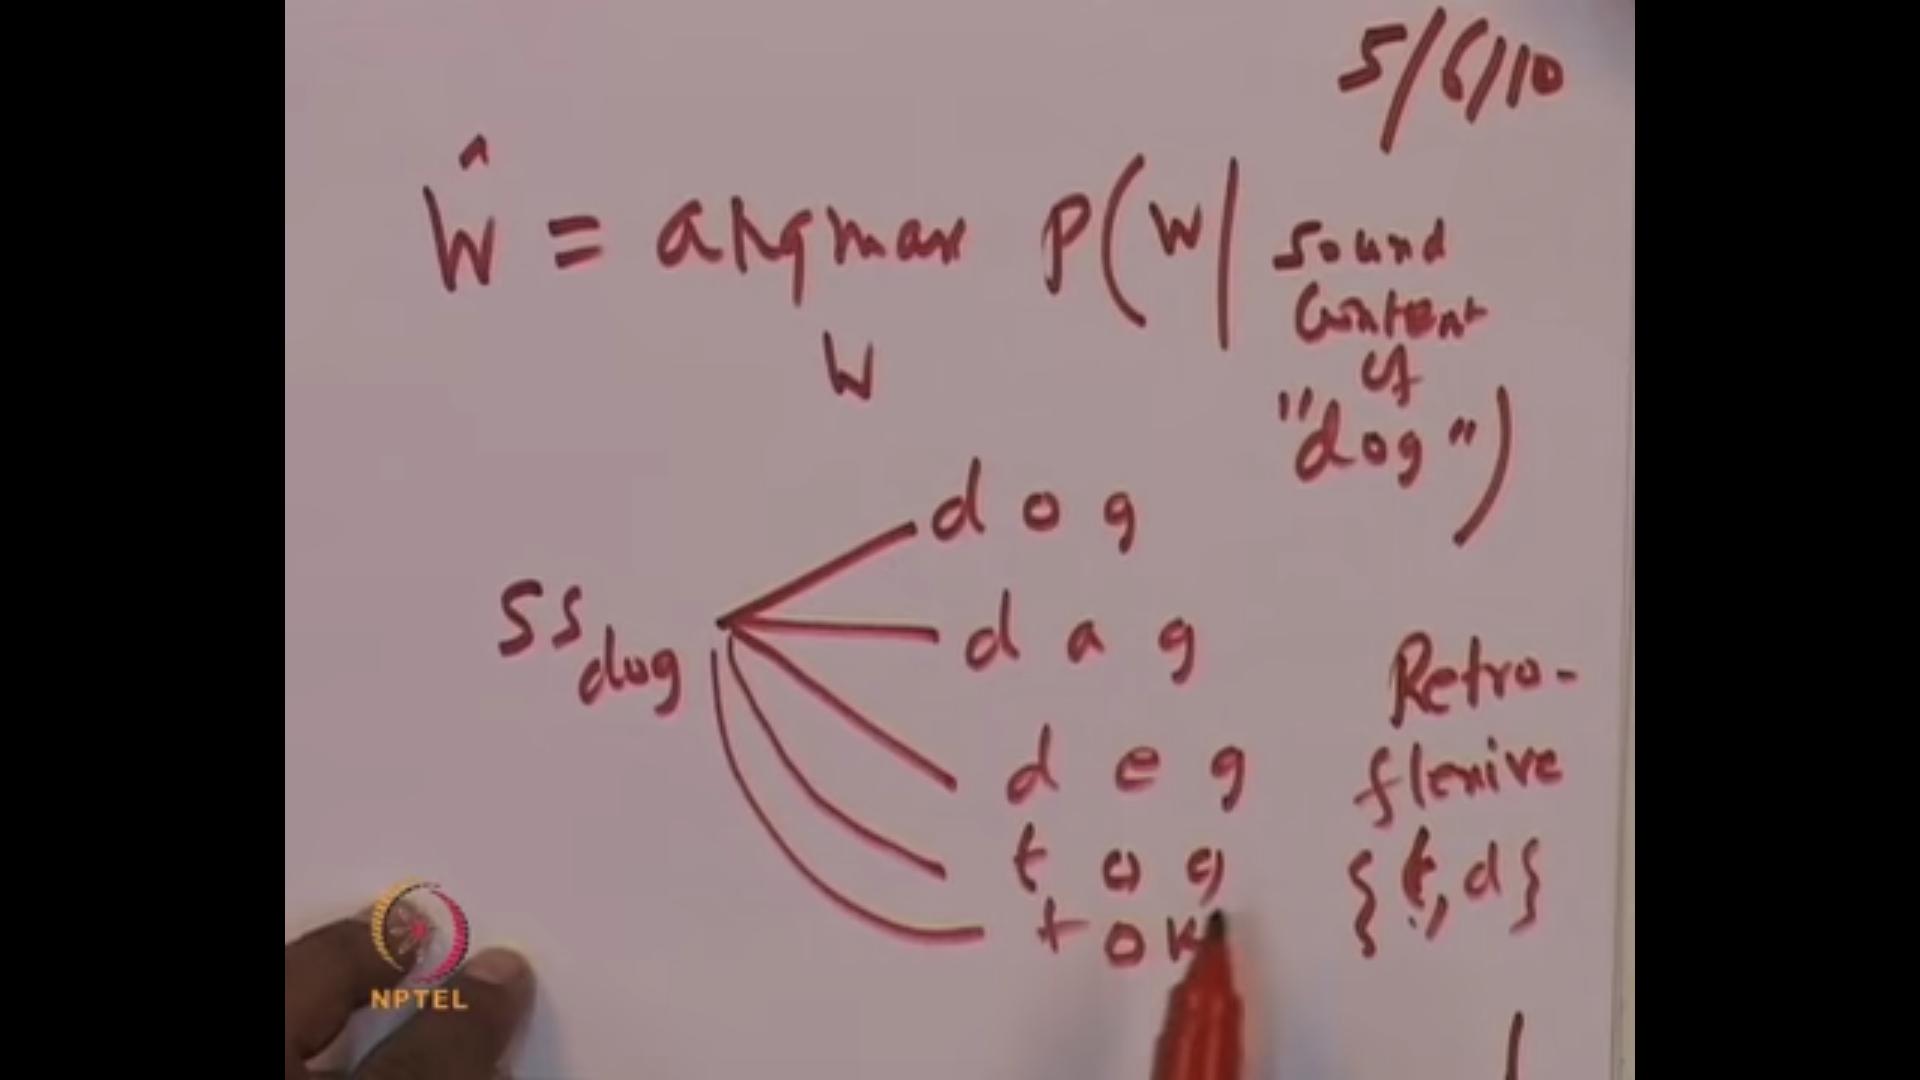 5/6/10
ŵ = argmax P(w| sound
content
of
"dog")
w
d o g
SS dog
d a g
d e g
t o g
t o k
Retro-
flexive
{ṭ, d}
NPTEL